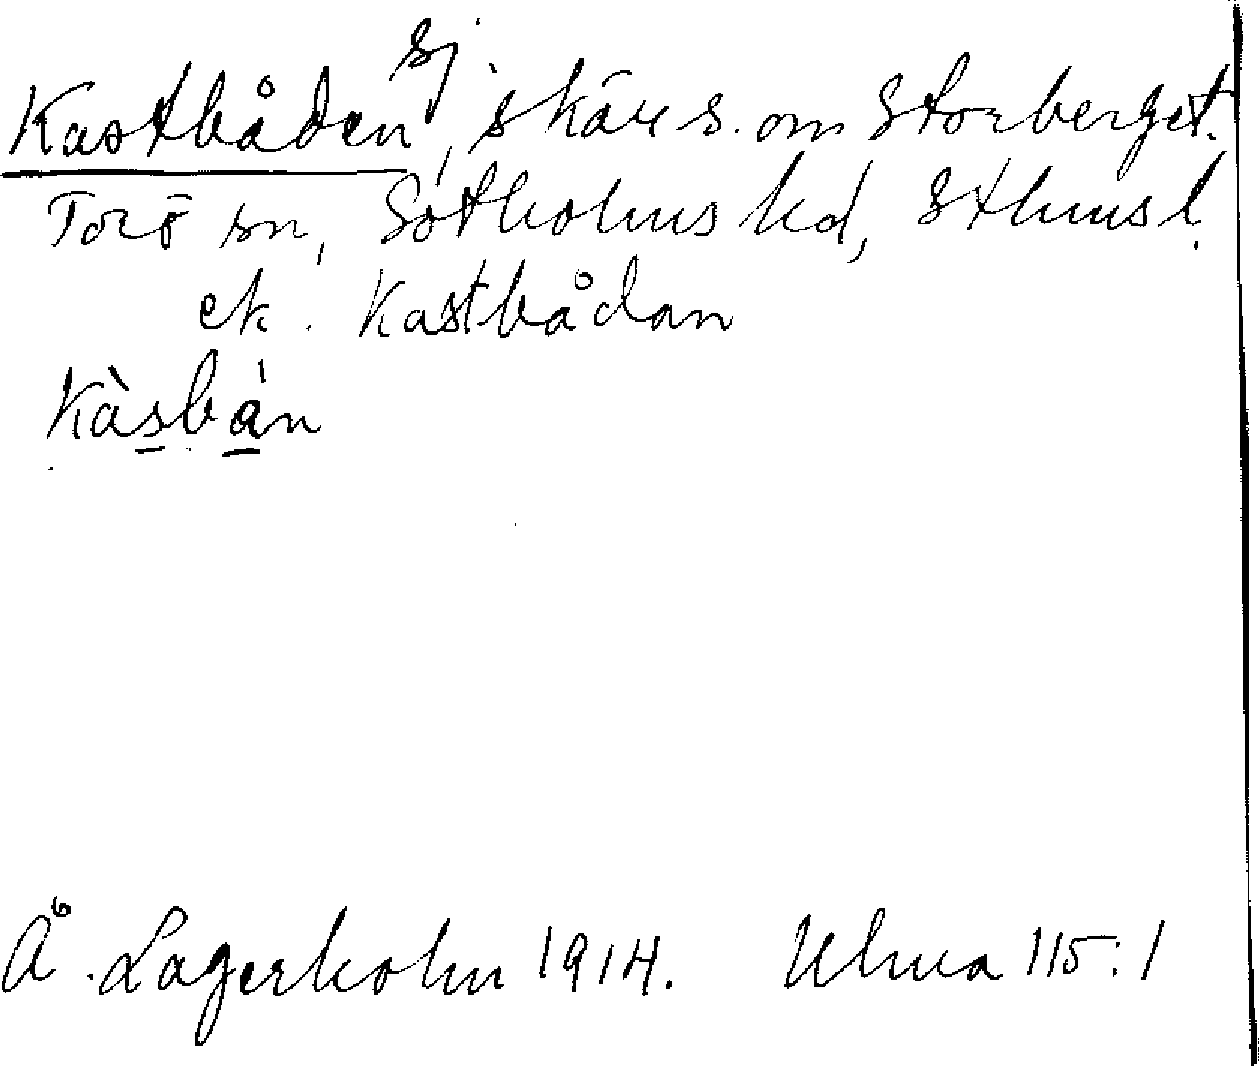 Kastbåden sj, skär s. om Storberget.
Torö sn, Sotholms hd, Sthms l.
ek. Kastbådan
Kàsbån
Å. Lagerholm 1914. Ulma 115:1